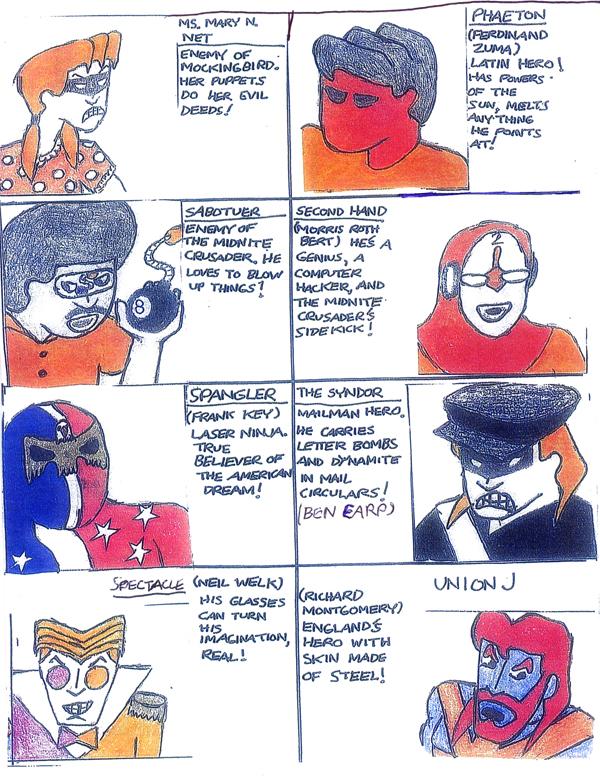 MS. MARY N.
NET
ENEMY OF
MOCKINGBIRD.
HER PUPPETS
DO HER EVIL
DEEDS!
PHAETON
(FERDINAND
ZUMA)
LATIN HERO!
HAS POWERS
OF THE
SUN, MELTS
ANYTHING
HE POINTS
AT!
SABOTUER
ENEMY OF
THE MIDNITE
CRUSADER, HE
LOVES TO BLOW
UP THINGS!
8
SECOND HAND
(MORRIS ROTH
BERT) HE'S A
GENIUS, A
COMPUTER
HACKER, AND
THE MIDNITE
CRUSADER'S
SIDEKICK!
2
SPANGLER
(FRANK KEY)
LASER NINJA.
TRUE
BELIEVER OF
THE AMERICAN
DREAM!
THE SYNDOR
MAILMAN HERO.
HE CARRIES
LETTER BOMBS
AND DYNAMITE
IN MAIL
CIRCULARS!
(BEN EARP)
SPECTACLE
(NEIL WELK)
HIS GLASSES
CAN TURN
HIS
IMAGINATION,
REAL!
UNION J
(RICHARD
MONTGOMERY)
ENGLAND'S
HERO WITH
SKIN MADE
OF STEEL!